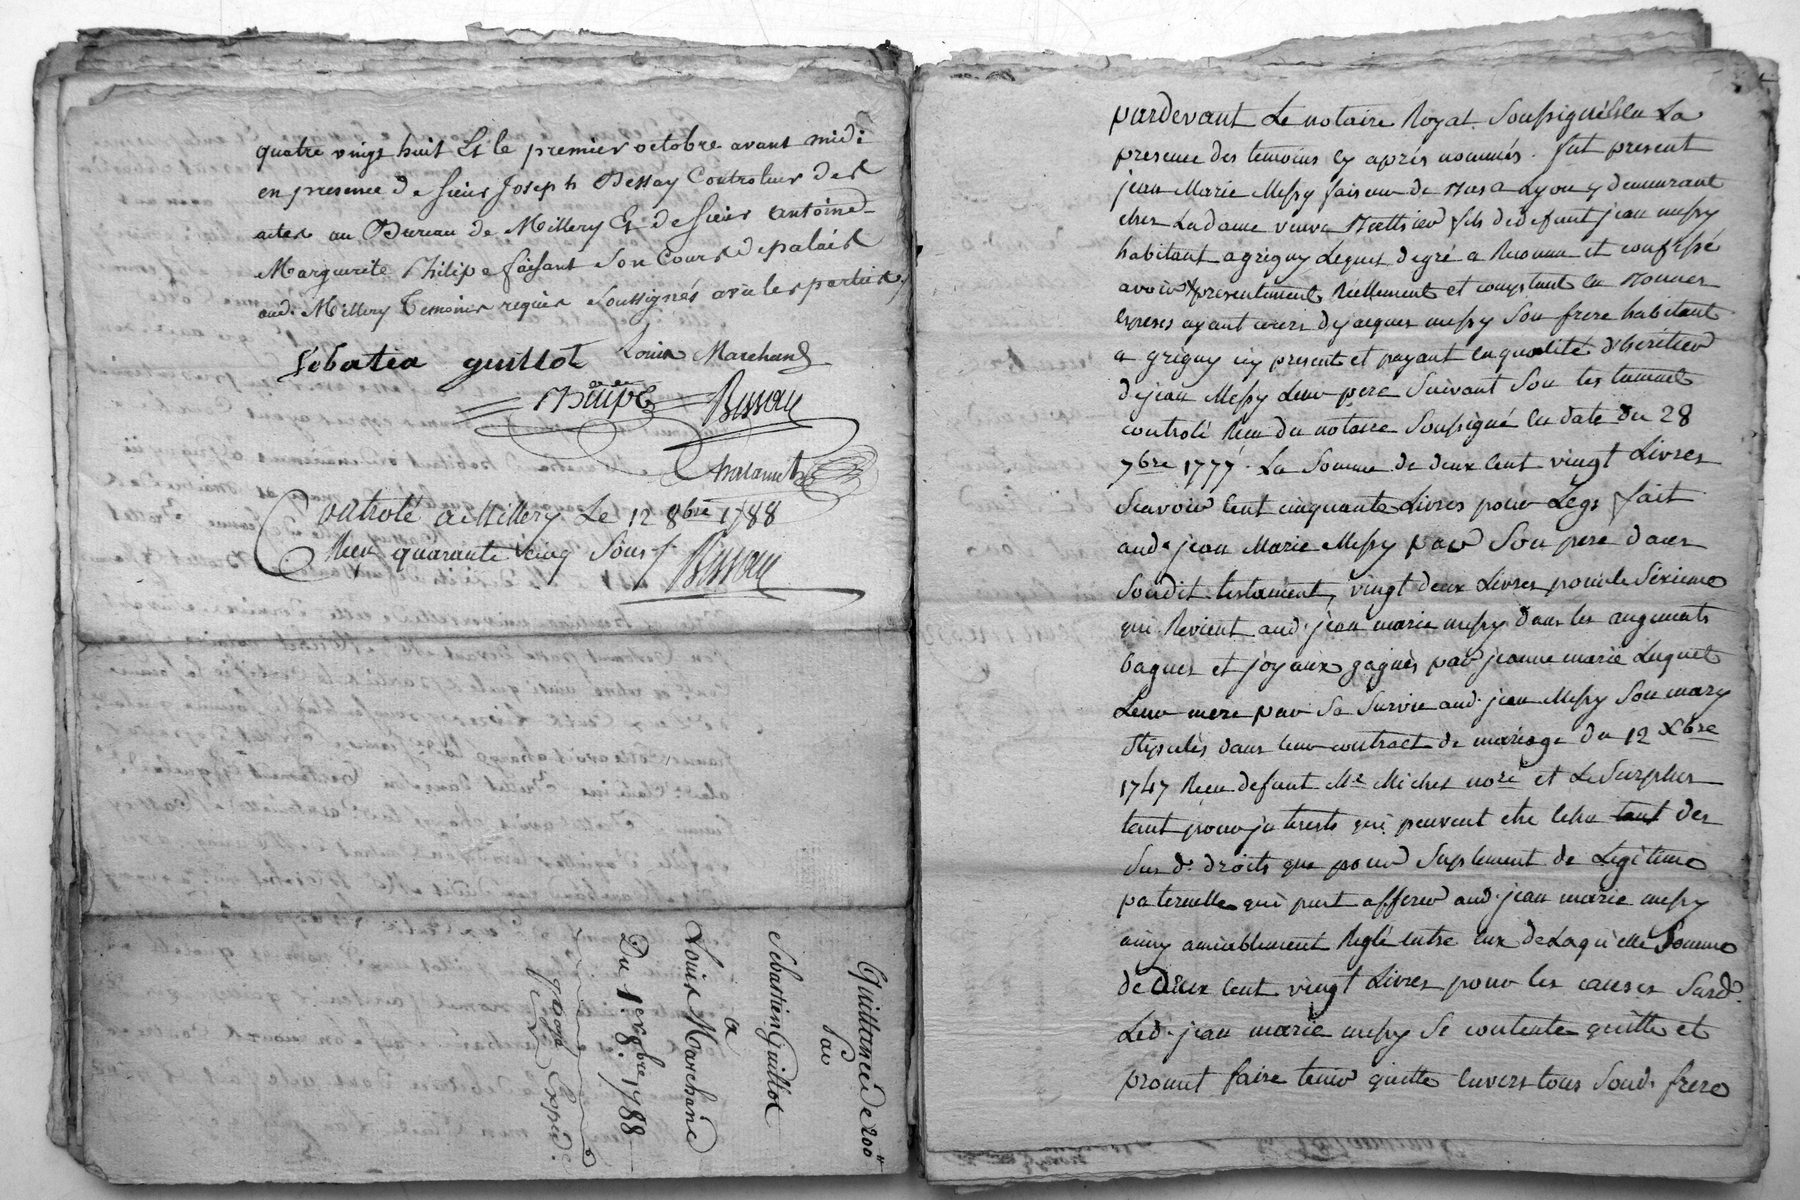 quatre vingt huit Et le premier octobre avant midi
en presence de sieur Joseph Bessay Controleur des
actes au Bureau de Millery Et de sieur antoine
Marguerite Philipe faisant Son Cours de palais
aud. Millery temoins requis Soussignés avec les parties
Sebatien guillot Louis Marchand
Philipe Bessay
Controlé a Millery Le 12 8bre 1788
Reçu quarante cinq Sous
Bessay
Quittance de 200#
Par
Sebastien Guillot
a
Louis Marchand
Du 1er 8bre 1788
Expéd.
pardevant Le notaire Royal Soussigné Et en La
presence des temoins cy après nommés. fut present
jean Marie Messy faiseur de Bas a Lyon y demeurant
ches La dame veuve Matthieu fils de defunt jean messy
habitant a grigny Lequel de gré a Reconnu et confessé
avoir presentement Reellement et comptant en Monnes
especes ayant cours de jacques messy Son frere habitant
a grigny icy present et payant en qualité d'héritier
de jean Messy Leur pere Suivant Son testament
controlé Reçu du notaire Soussigné en date du 28
7bre 1777. La Somme de deux cent vingt Livres
Scavoir cent cinquante Livres pour Legs fait
aud. jean Marie Messy par Son pere dans
Soudit testament, vingt deux Livres pour le Sixieme
qui Revient aud. jean marie messy dans les augments
bagues et joyaux gagnés par jeanne marie Luquet
Leur mere par Sa Survie aud. jean Messy Son mary
Stipulés dans leur contract de mariage du 12 Xbre
1747 Reçu defunt Me Michel nore et Le Surplus
tant pour jnterests qui peuvent etre echu tant des
Susd. droits que pour Suplement de Legitime
paternelle qui peut afferer aud. jean marie messy
ainsy amiablement Reglé entre eux de Laquelle Somme
de deux cent vingt Livres pour les causes Susd.
Led. jean marie messy Se contente quitte et
promet faire tenir quitte envers tous Soud. frere